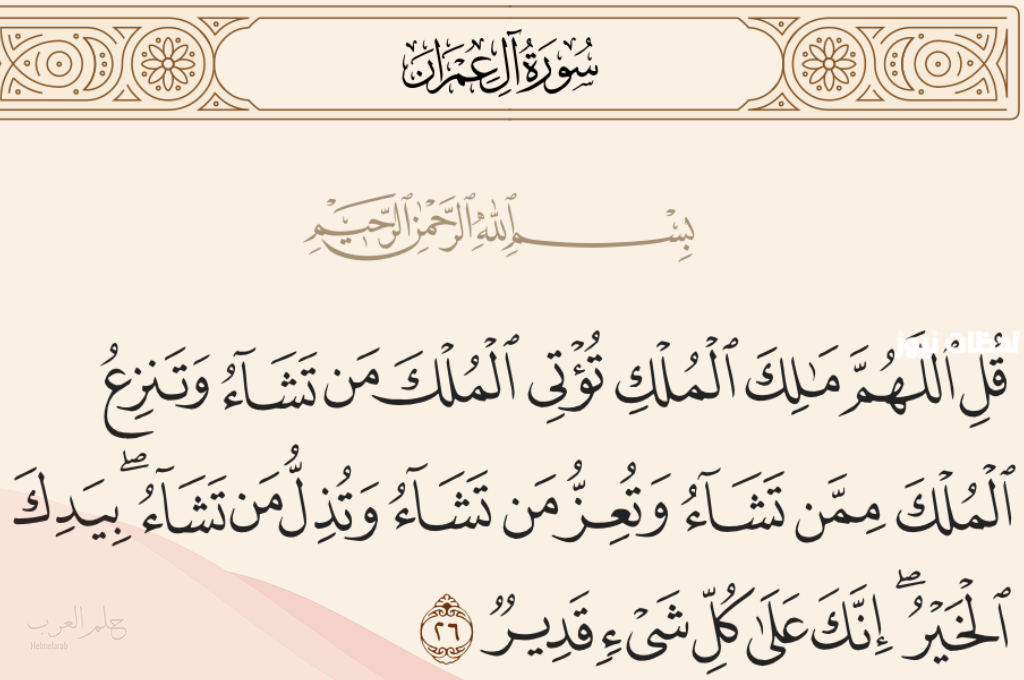 سُورَةُ آلِ عِمْرَانَ
بِسْمِ ٱللَّهِ ٱلرَّحْمَٰنِ ٱلرَّحِيمِ
لحظات نيوز
قُلِ ٱللَّهُمَّ مَٰلِكَ ٱلْمُلْكِ تُؤْتِى ٱلْمُلْكَ مَن تَشَآءُ وَتَنزِعُ
ٱلْمُلْكَ مِمَّن تَشَآءُ وَتُعِزُّ مَن تَشَآءُ وَتُذِلُّ مَن تَشَآءُ ۖ بِيَدِكَ
ٱلْخَيْرُ ۖ إِنَّكَ عَلَىٰ كُلِّ شَىْءٍ قَدِيرٌ ٢٦
حلم العرب
Helmelarab